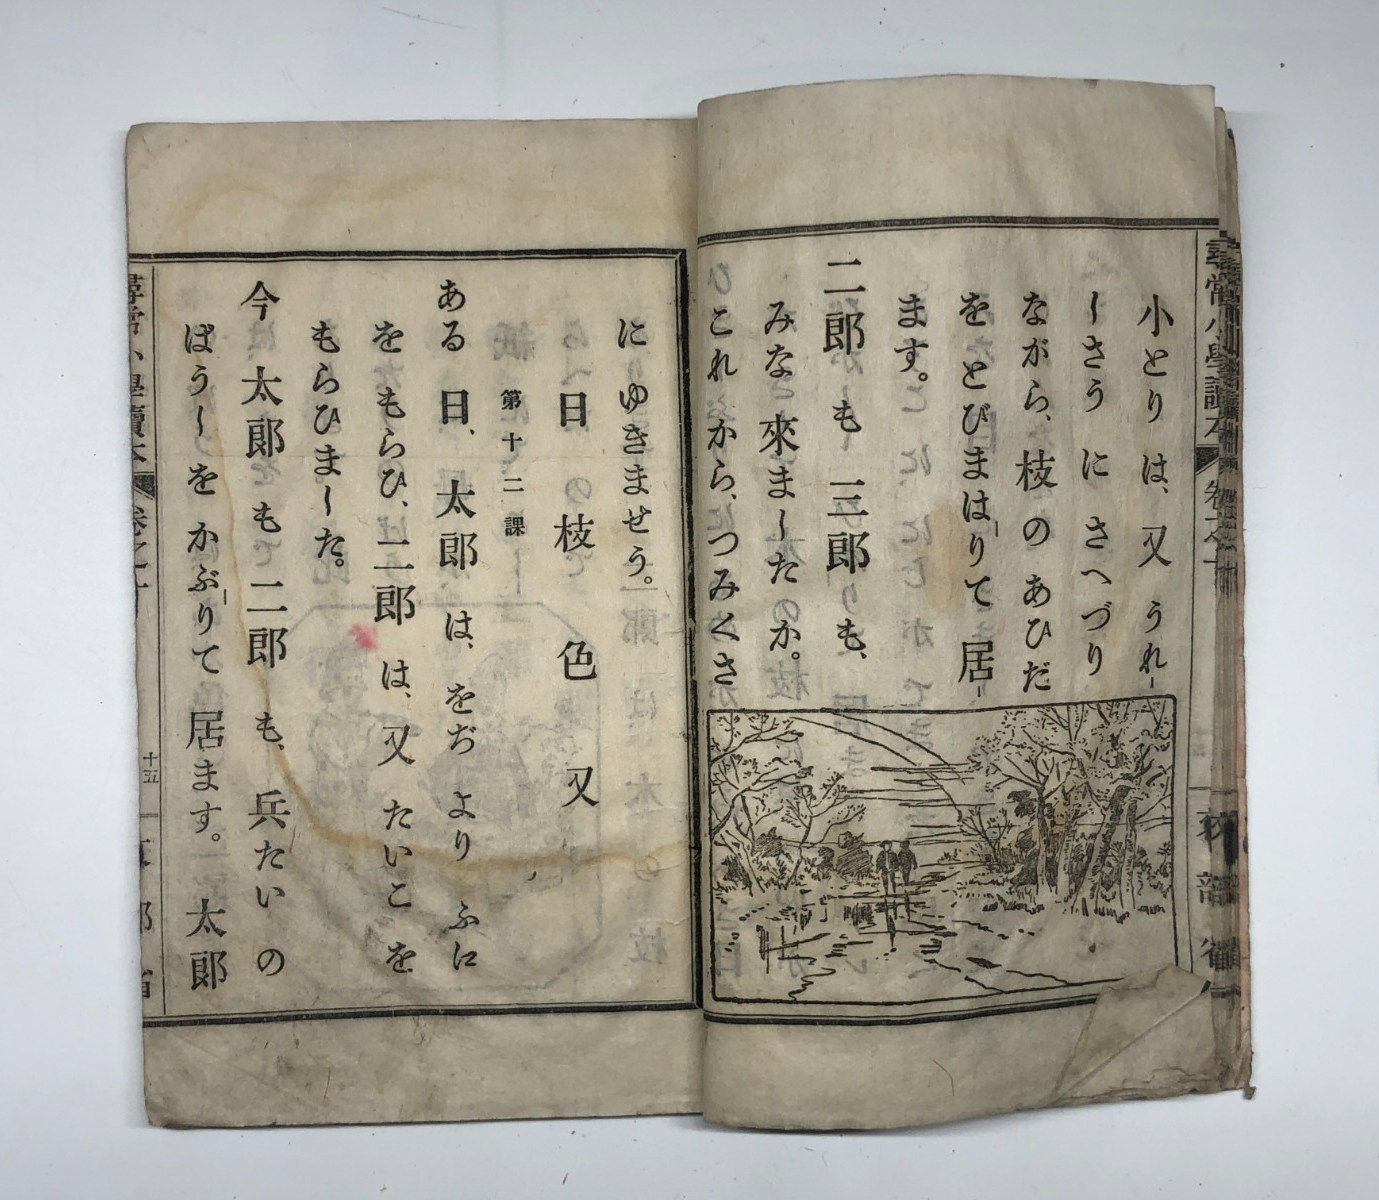 小とり は、又 うれ
しさう に さへづり
ながら、枝 の あひだ
を とび まはりて 居
ます。
二郎 も 三郎 も、
みな 來ましたか。
これ から、つみくさ
に ゆきませう。
日 枝 色 又
第十二課
ある 日、太郎 は、をぢ より ふに
を もらひ、二郎 は、又 たいこ を
もらひました。
今 太郎 も 二郎 も、兵たい の
ばうしを かぶりて 居ます。 太郎
尋常小學讀本
卷之一
十五
文部省